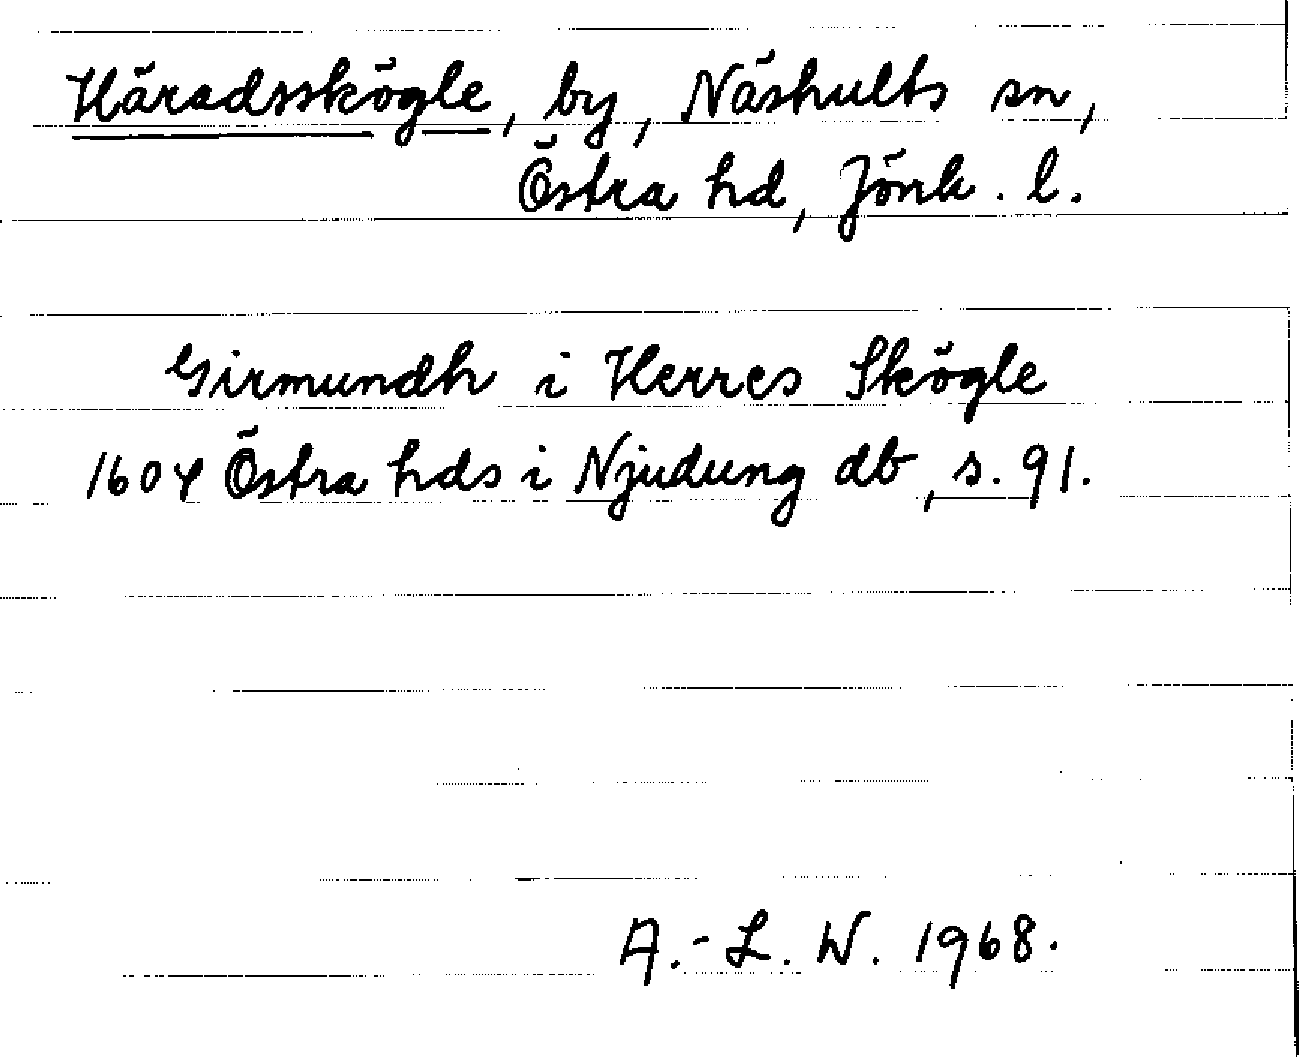 Häradsskögle, by, Näshults sn,
Östra hd, Jönk. l.
Girmundh i Herres Skögle
1604 Östra hds i Njudung db, s. 91.
A.-L. W. 1968.